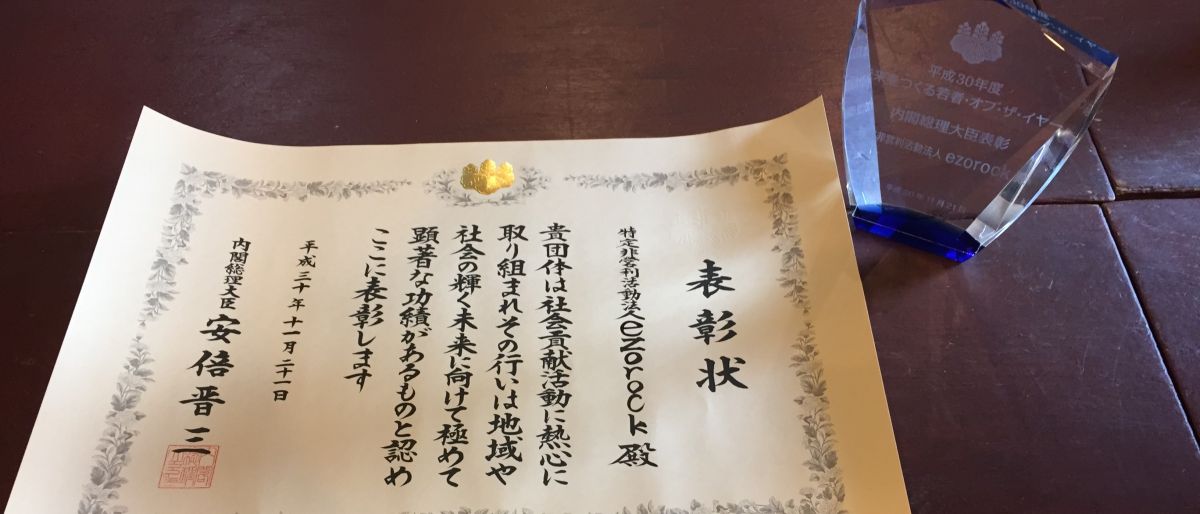 表彰状
特定非営利活動法人ezorock殿
貴団体は社会貢献活動に熱心に
取り組まれその行いは地域や
社会の輝く未来に向けて極めて
顕著な功績があるものと認め
ここに表彰します
平成三十年十一月二十一日
内閣総理大臣 安倍晋三
平成30年度
未来をつくる若者・オブ・ザ・イヤー
内閣総理大臣表彰
非営利活動法人 ezorock
平成30年11月21日